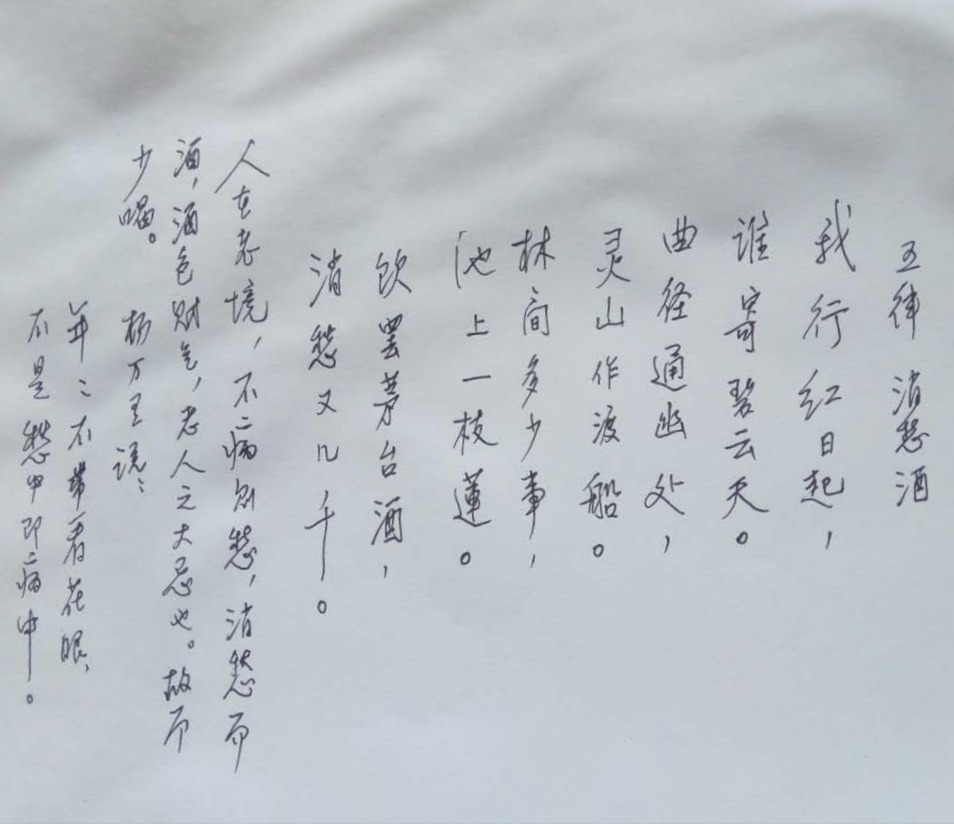 五律 消愁酒
我行红日起，
谁寄碧云天。
曲径通幽处，
灵山作渡船。
林间多少事，
池上一枝莲。
饮罢茅台酒，
消愁又几千。
人在老境，不二病则愁，消愁而
酒，酒色财气，老人之大忌也。故而
少喝。
杨万里说：
年二不带看花眼，
不是愁中即二病中。